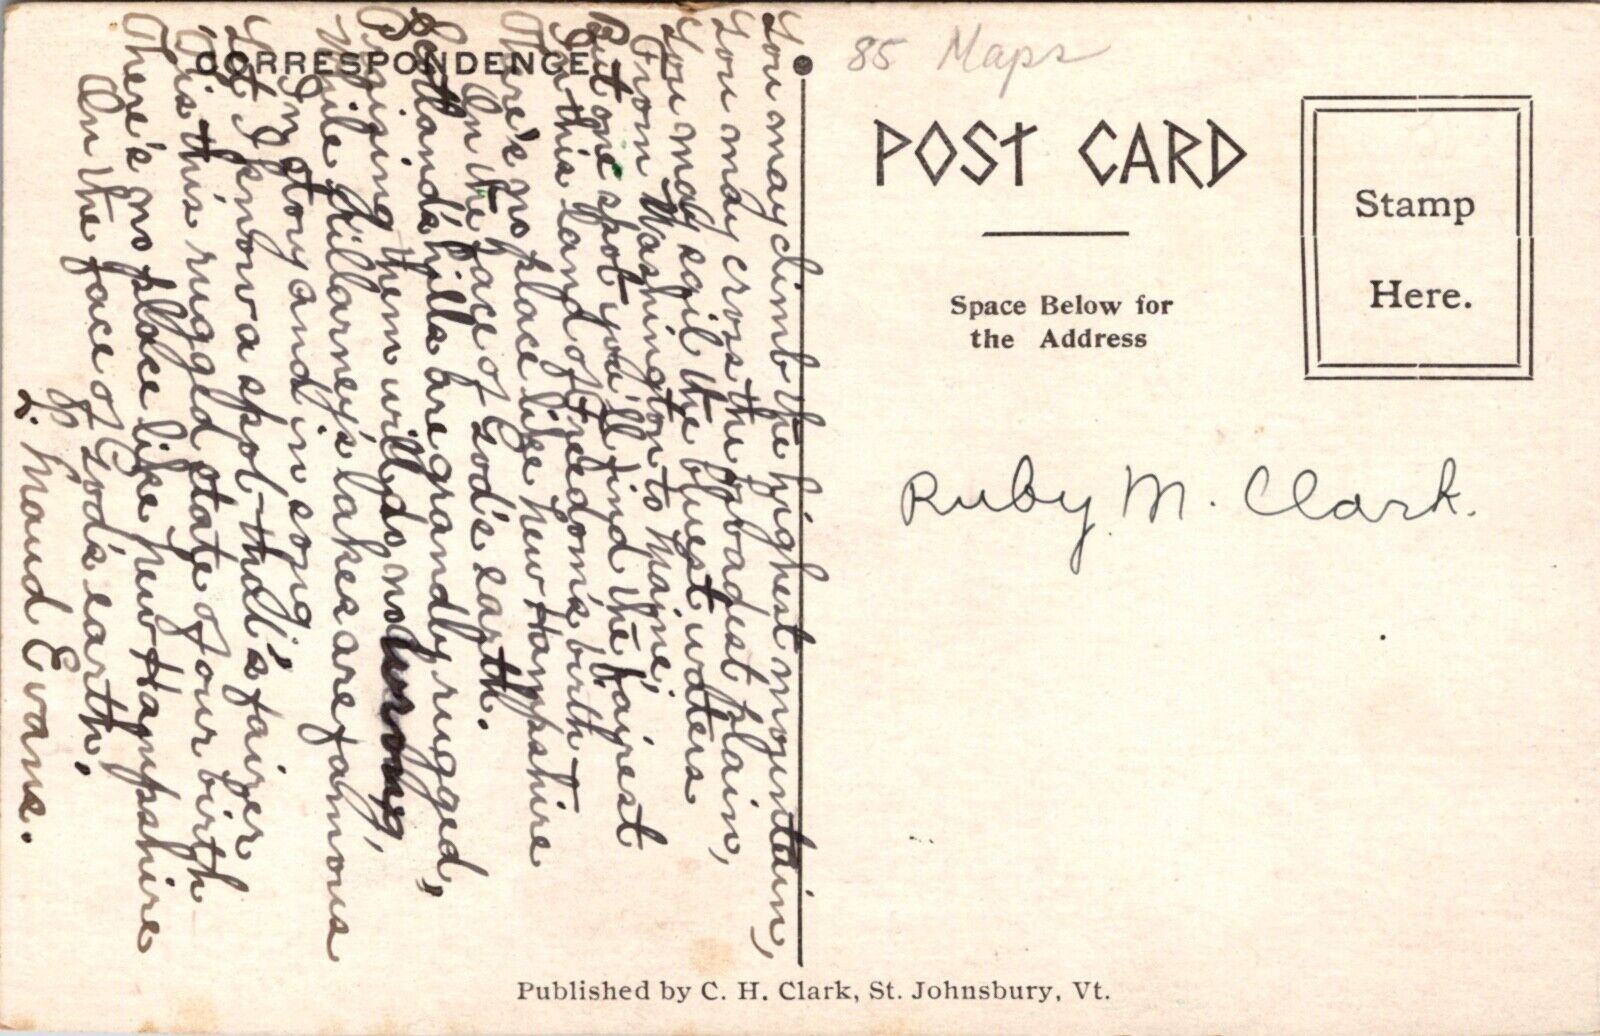 CORRESPONDENCE
You may climb the highest mountain,
You may cross the broadest plain,
You may sail the bluest waters
From Washington to Maine;
But one spot you'll find the fairest
In this land of Freedom's birth
There's no place like New Hampshire
In the face of God's earth.
Scotland's hills are grandly rugged,
Praising them will do no wrong,
While Killarney's lakes are famous
In story and in song;
Yet I know a spot that's fairer
'Tis this rugged state of our birth
There's no place like New Hampshire
On the face of God's earth.
L. Maud Evans.
85 Maps
POST CARD
Space Below for
the Address
Stamp
Here.
Ruby M. Clark.
Published by C. H. Clark, St. Johnsbury, Vt.